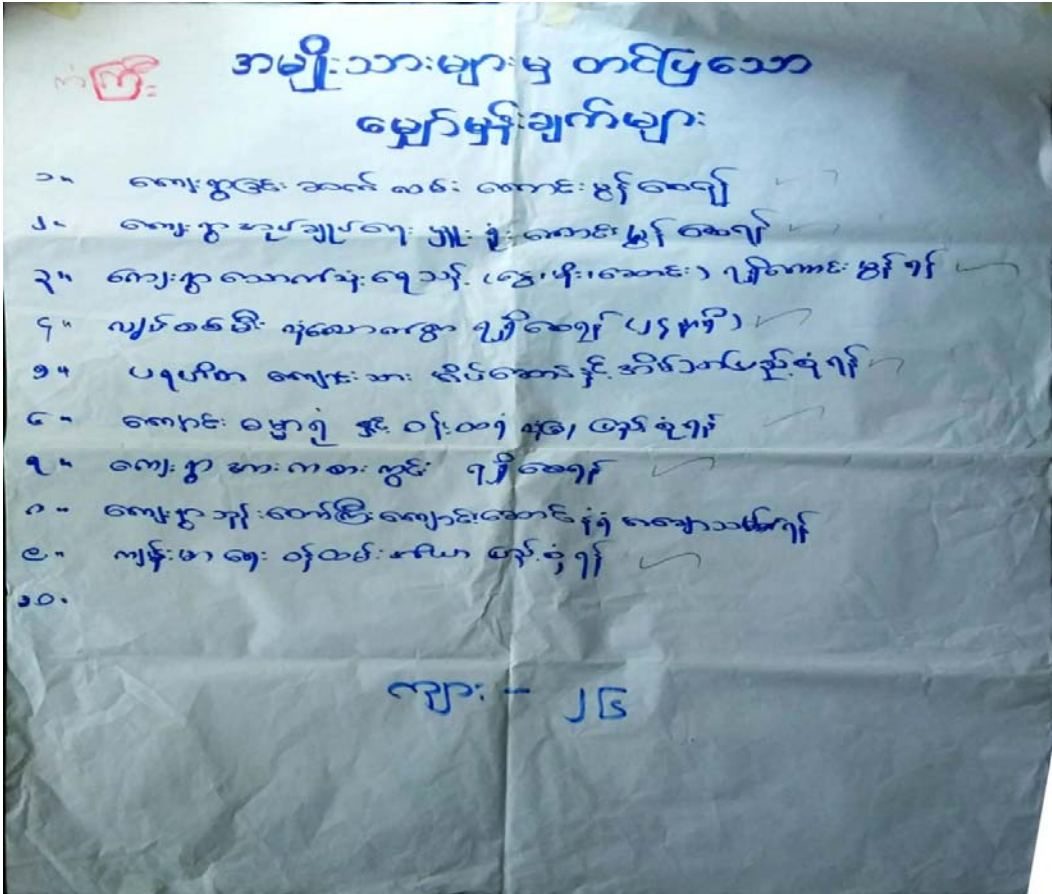 ကြီး
အမျိုးသားများမှ တင်ပြသော
မျှော်မှန်းချက်များ
၁။ ကျေးရွာချင်း ဆက် လမ်း ကောင်းမွန်စေရန်
၂။ ကျေးရွာ အုပ်ချုပ်ရေး မှူး ရုံး ကောင်းမွန် စေရန်
၃။ ကျေးရွာ သောက်သုံးရေသန့် (နွေ၊မိုး၊ဆောင်း) ရရှိကောင်းမွန်ရန်
၄။ လျှပ်စစ်မီး လုံလောက်စွာ ရရှိစေရန်
၅။ ပရဟိတ ကျောင်းသား အိပ်ဆောင်နှင့် အိမ်သာပြည့်စုံရန်
၆။ ကျောင်း ဓမ္မာရုံ နှင့် ဝန်းထရံ ပြည့်စုံရန်
၇။ ကျေးရွာ အားကစားကွင်း ရရှိစေရန်
၈။ ကျေးရွာ ဘုန်းတော်ကြီးကျောင်းဆောင်
၉။ ကျန်းမာရေး ဝန်ထမ်း ပြည့်စုံရန်
၁၀.
ကျား - ၂၆